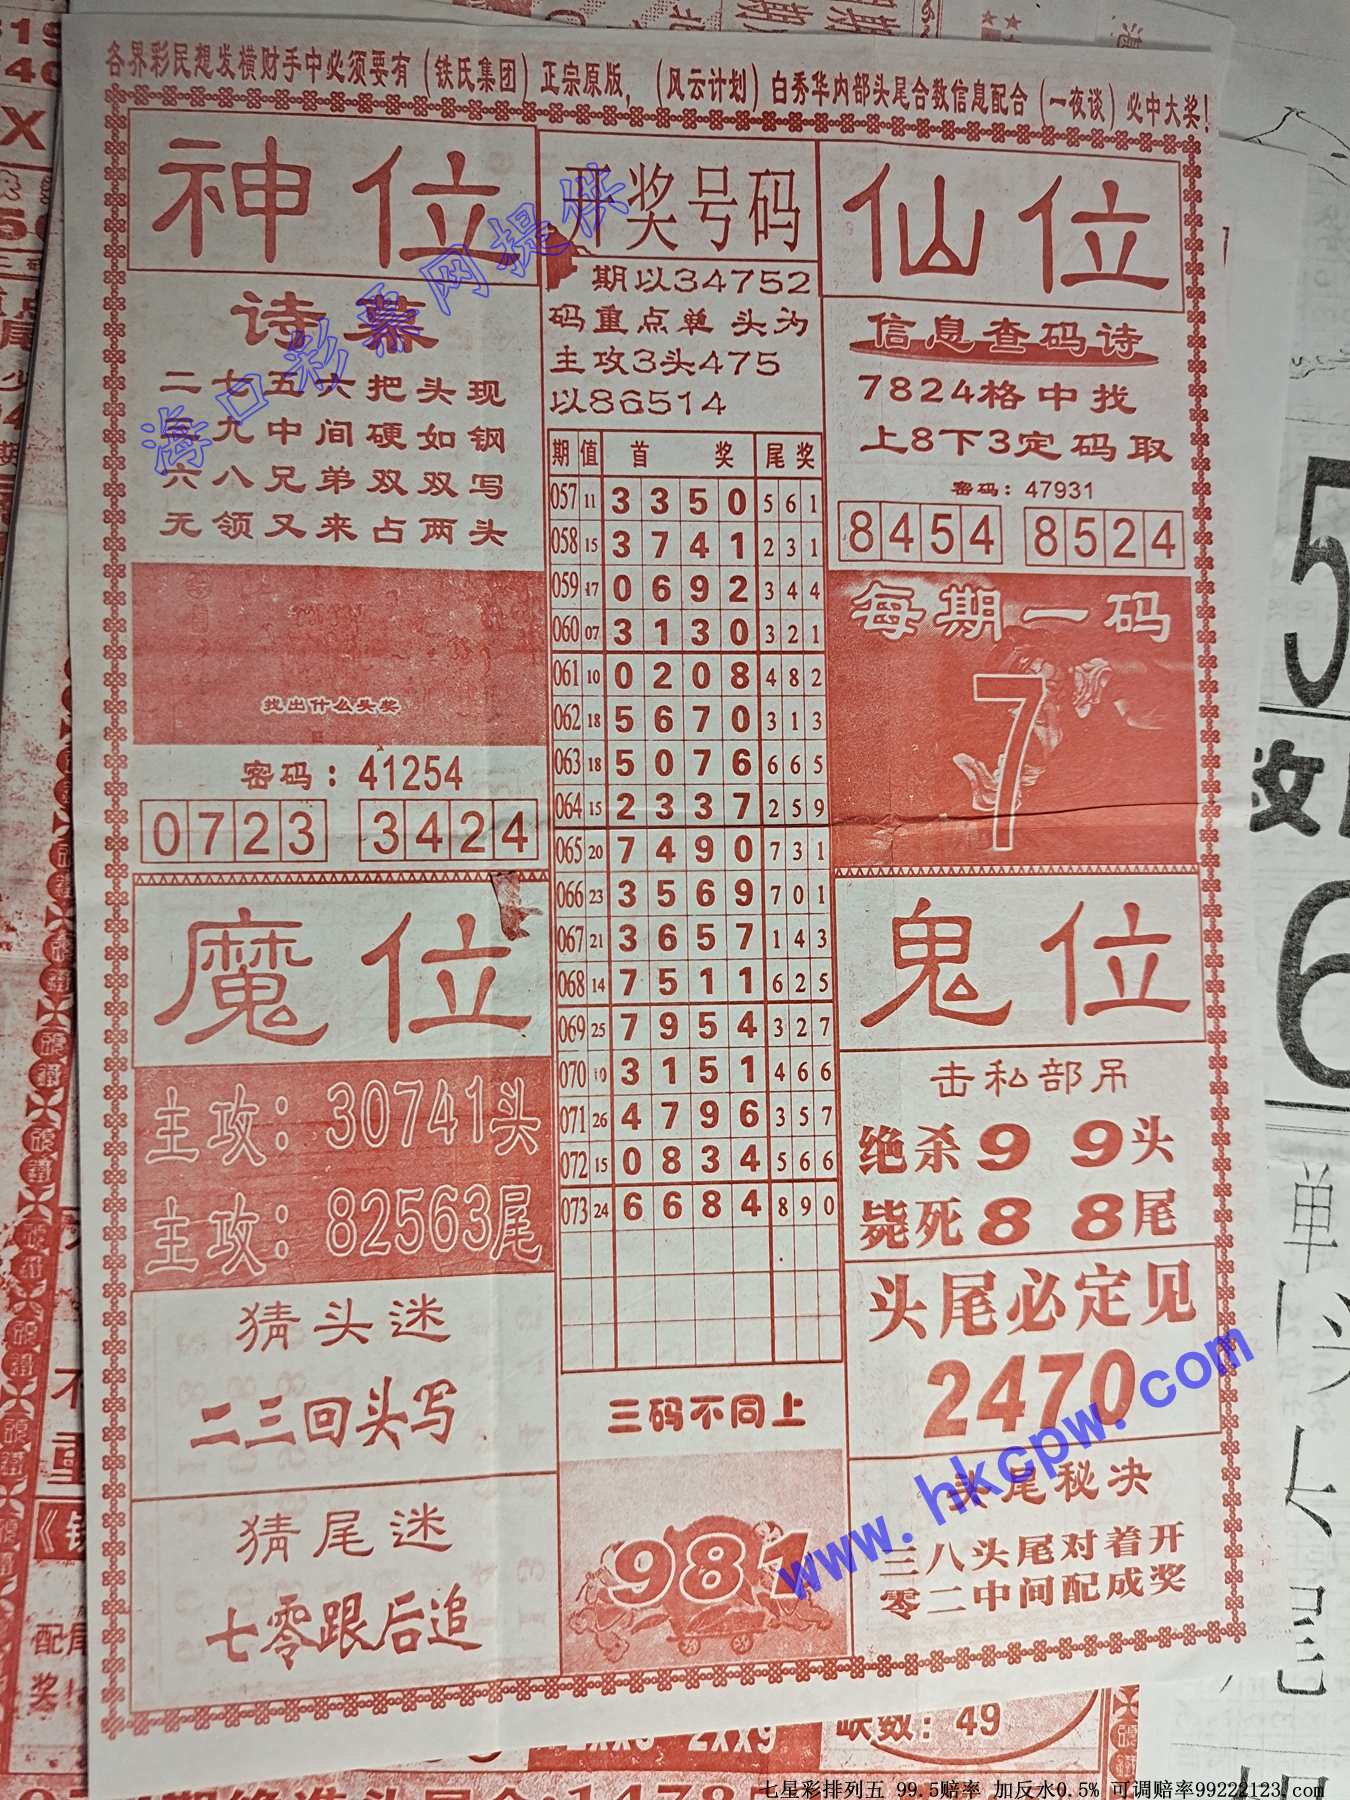 各界彩民想发横财手中必须要有（铁氏集团）正宗原版，（风云计划）白秀华内部头尾合数信息配合（一夜谈）必中大奖！
神位
诗幕
二七五六把头现
九中间硬如钢
六八兄弟双双写
无领又来占两头
找出什么头奖
密码：41254
0723 3424
开奖号码
期以34752
码重点单 头为
主攻3头475
以86514
期 值 首 奖 尾奖
057 11 3 3 5 0 5 6 1
058 15 3 7 4 1 2 3 1
059 17 0 6 9 2 3 4 4
060 07 3 1 3 0 3 2 1
061 10 0 2 0 8 4 8 2
062 18 5 6 7 0 3 1 3
063 18 5 0 7 6 6 6 5
064 15 2 3 3 7 2 5 9
065 20 7 4 9 0 7 3 1
066 23 3 5 6 9 7 0 1
067 21 3 6 5 7 1 4 3
068 14 7 5 1 1 6 2 5
069 25 7 9 5 4 3 2 7
070 10 3 1 5 1 4 6 6
071 26 4 7 9 6 3 5 7
072 15 0 8 3 4 5 6 6
073 24 6 6 8 4 8 9 0
三码不同上
981
仙位
信息查码诗
7824格中找
上8下3定码取
密码：47931
8454 8524
每期一码
7
魔位
主攻：30741头
主攻：82563尾
猜头迷
二三回头写
猜尾迷
七零跟后追
鬼位
击私部吊
绝杀9 9头
毙死8 8尾
头尾必定见
2470
头尾秘决
三八头尾对着开
零二中间配成奖
海口彩票网提供
www.hkcpw.com
5
攻
6
单
头
尾
数：49
2xx9
七星彩排列五 99.5赔率 加反水0.5% 可调赔率99222123.com